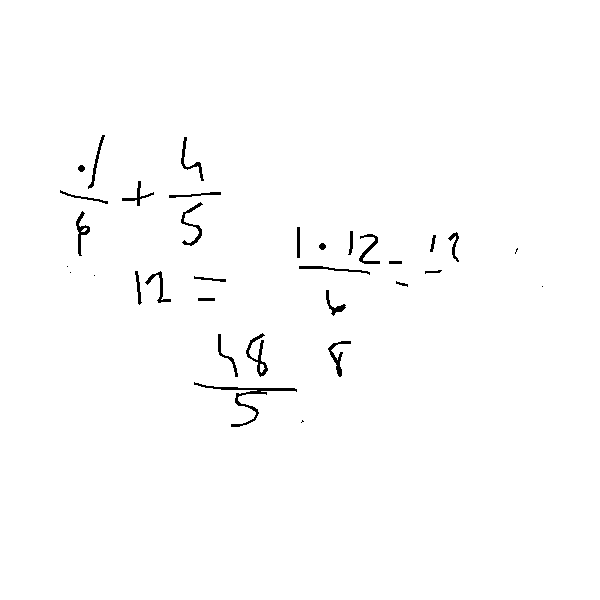 1/6 + 4/5
12 = 1 · 12/6 = 12
48/5 8